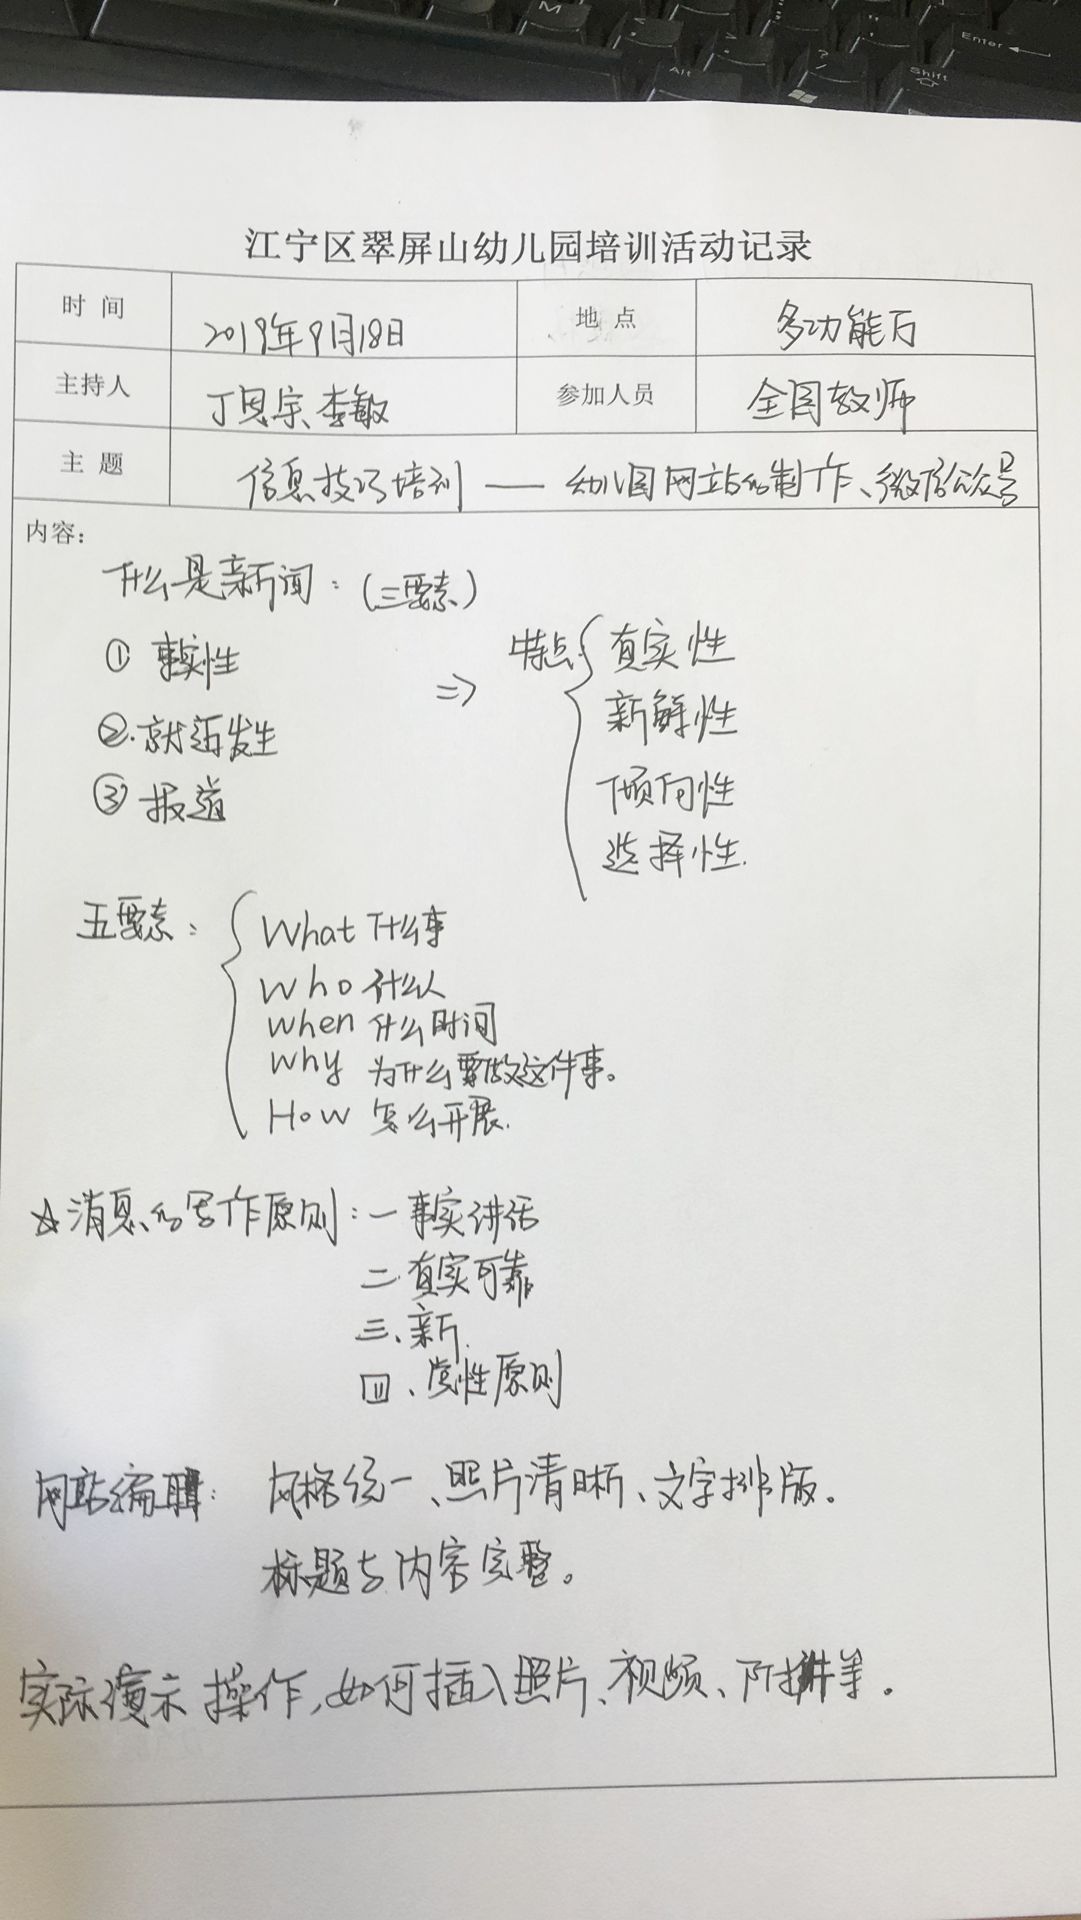 江宁区翠屏山幼儿园培训活动记录
时 间 2019年9月18日 地 点 多功能厅
主持人 丁恩宗、李敏 参加人员 全园教师
主 题 信息技巧培训 —— 幼儿园网站的制作、微信公众号
内容：
什么是新闻：(三要素)
① 事实性
②.就近发生
③ 报道
⇒ 特点 真实性
新鲜性
倾向性
选择性.
五要素：
What 什么事
Who 什么人
When 什么时间
Why 为什么要做这件事。
How 怎么开展.
☆消息的写作原则：一事实讲话
二.真实可靠
三、新.
四、党性原则
网站编辑： 风格统一、照片清晰、文字排版。
标题与内容完整。
实际演示操作,如何插入照片、视频、附件等.